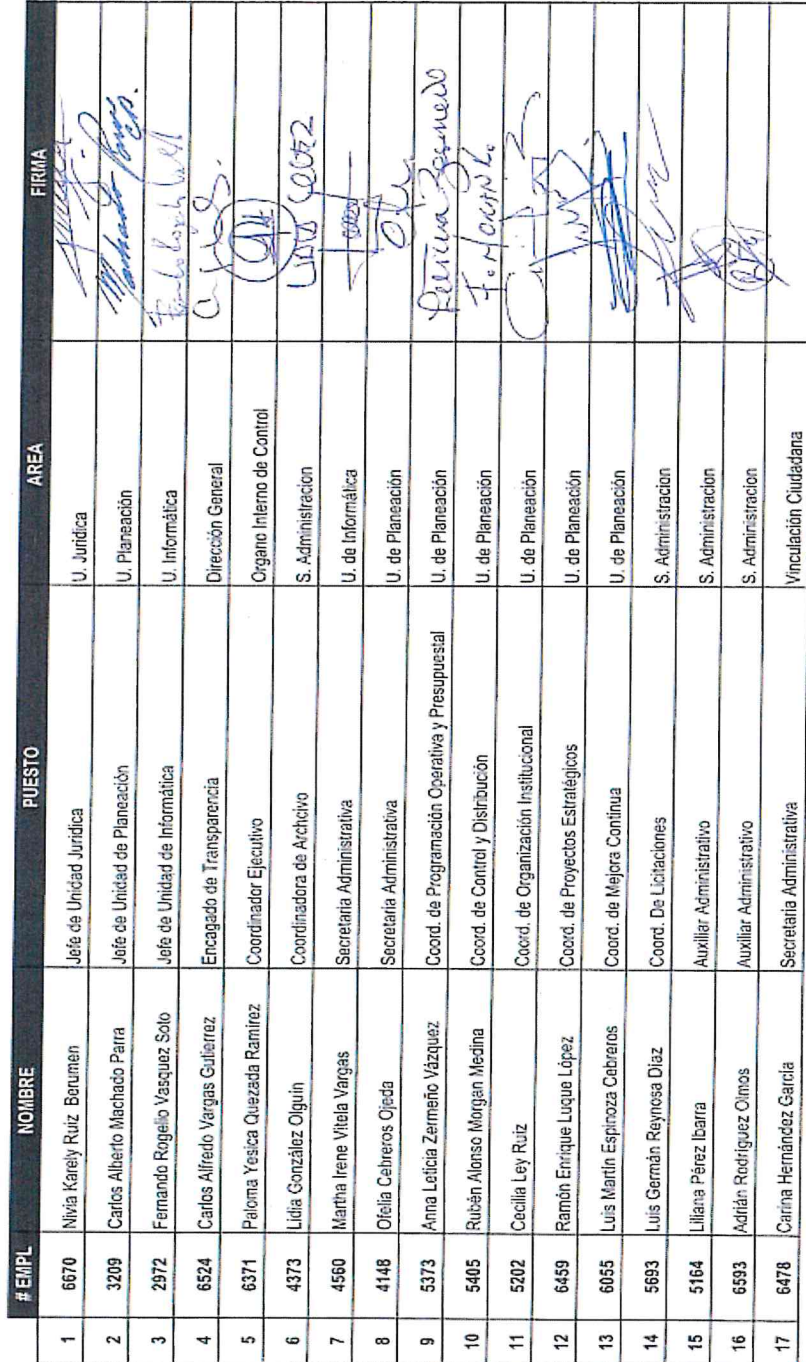 # EMPL NOMBRE PUESTO AREA FIRMA
1 6670 Nivia Karely Ruiz Berumen Jefe de Unidad Juridica U. Juridica
2 3209 Carlos Alberto Machado Parra Jefe de Unidad de Planeación U. Planeación Machado Parra
3 2972 Fernando Rogelio Vasquez Soto Jefe de Unidad de Informática U. Informática
4 6524 Carlos Alfredo Vargas Gutierrez Encagado de Transparencia Dirección General
5 6371 Paloma Yesica Quezada Ramirez Coordinador Ejecutivo Organo Interno de Control
6 4373 Lidia González Olguin Coordinadora de Archcivo S. Administracion
7 4560 Martha Irene Vitela Vargas Secretaria Administrativa U. de Informática
8 4148 Ofelia Cebreros Ojeda Secretaria Administrativa U. de Planeación
9 5373 Anna Leticia Zermeño Vázquez Coord. de Programación Operativa y Presupuestal U. de Planeación Leticia Zermeño
10 5405 Rubén Alonso Morgan Medina Coord. de Control y Distribución U. de Planeación
11 5202 Cecilia Ley Ruiz Coord. de Organización Institucional U. de Planeación
12 6459 Ramón Enrique Luque López Coord. de Proyectos Estratégicos U. de Planeación
13 6055 Luis Martin Espinoza Cebreros Coord. de Mejora Continua U. de Planeación
14 5693 Luis Germán Reynosa Diaz Coord. De Licitaciones S. Administracion
15 5164 Liliana Pérez Ibarra Auxiliar Administrativo S. Administracion
16 6593 Adrián Rodríguez Olmos Auxiliar Administrativo S. Administracion
17 6478 Carina Hernández García Secretaria Administrativa Vinculación Ciudadana